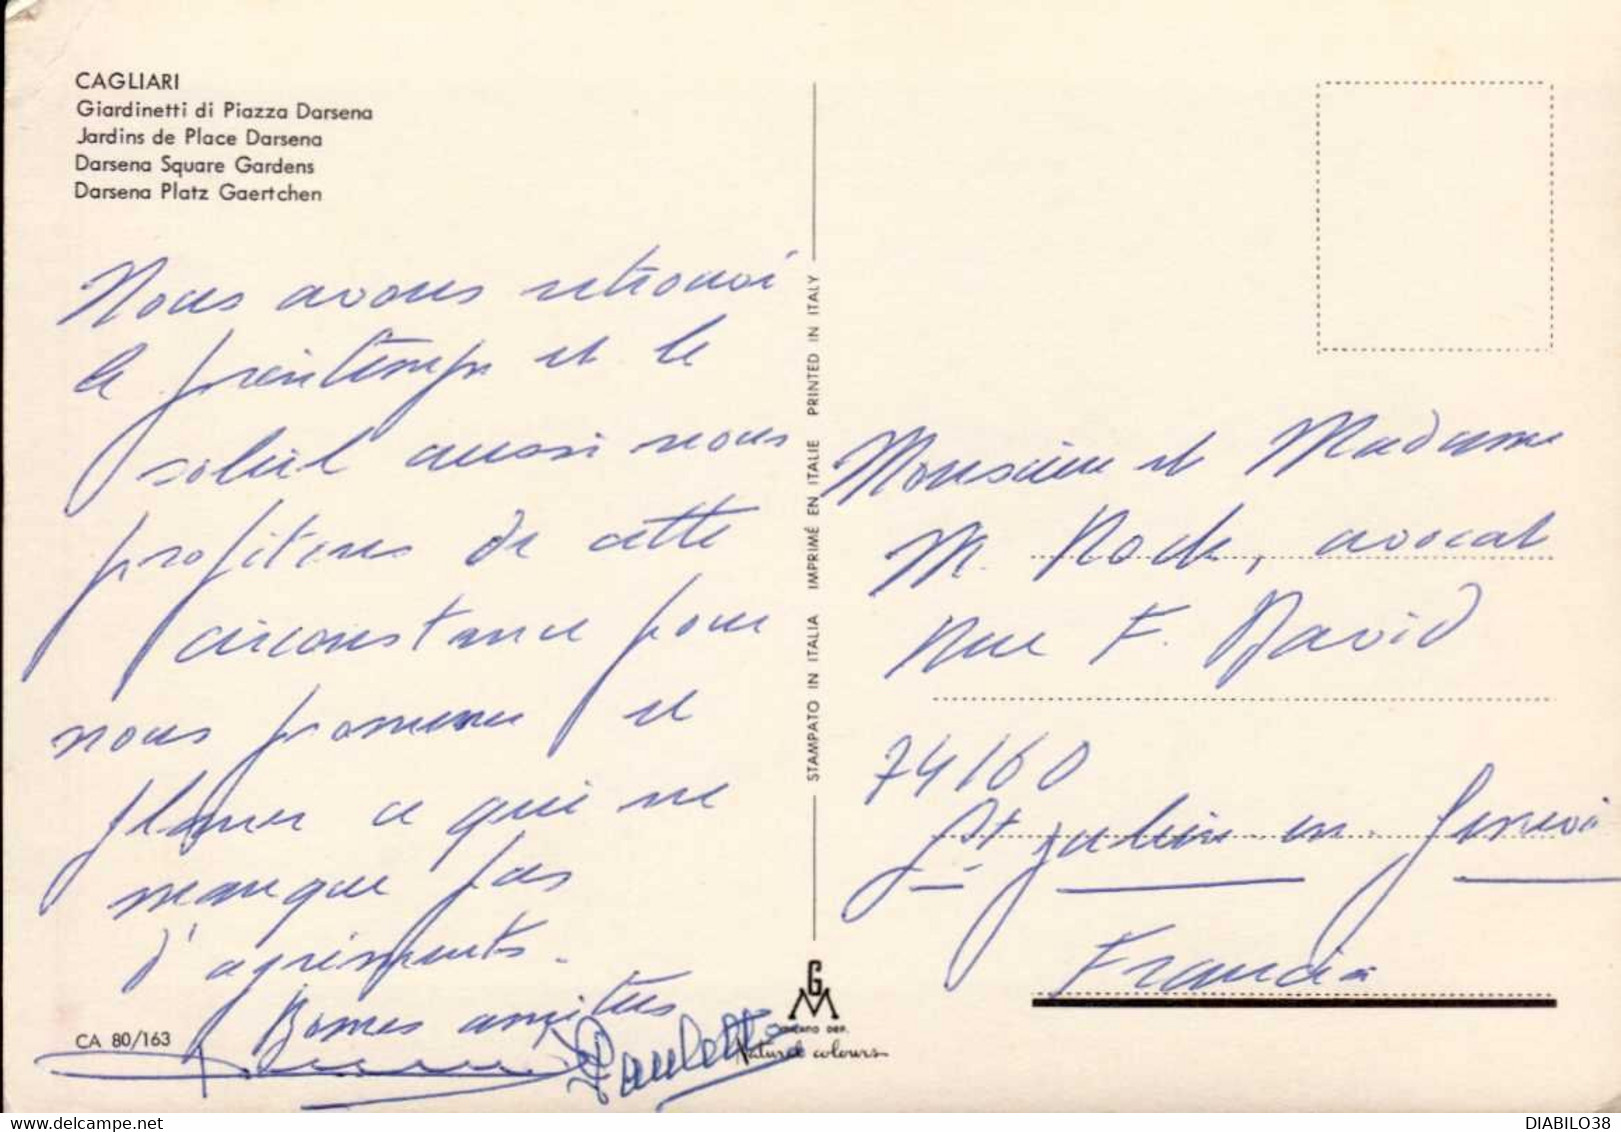 CAGLIARI
Giardinetti di Piazza Darsena
Jardins de Place Darsena
Darsena Square Gardens
Darsena Platz Gaertchen
Nous avons retrouvé
le printemps et le
soleil aussi nous
profitons de cette
circonstance pour
nous promener et
flaner ce qui ne
manque pas
d'agréments.
Bonnes amitiés
Paulette
CA 80/163
STAMPATO IN ITALIA IMPRIMÉ EN ITALIE PRINTED IN ITALY
GM
DEP.
Natural colours
Monsieur et Madame
M. Roch, avocat
Rue F. David
74160
St Julien en Genevois
Francia
DIABILO38